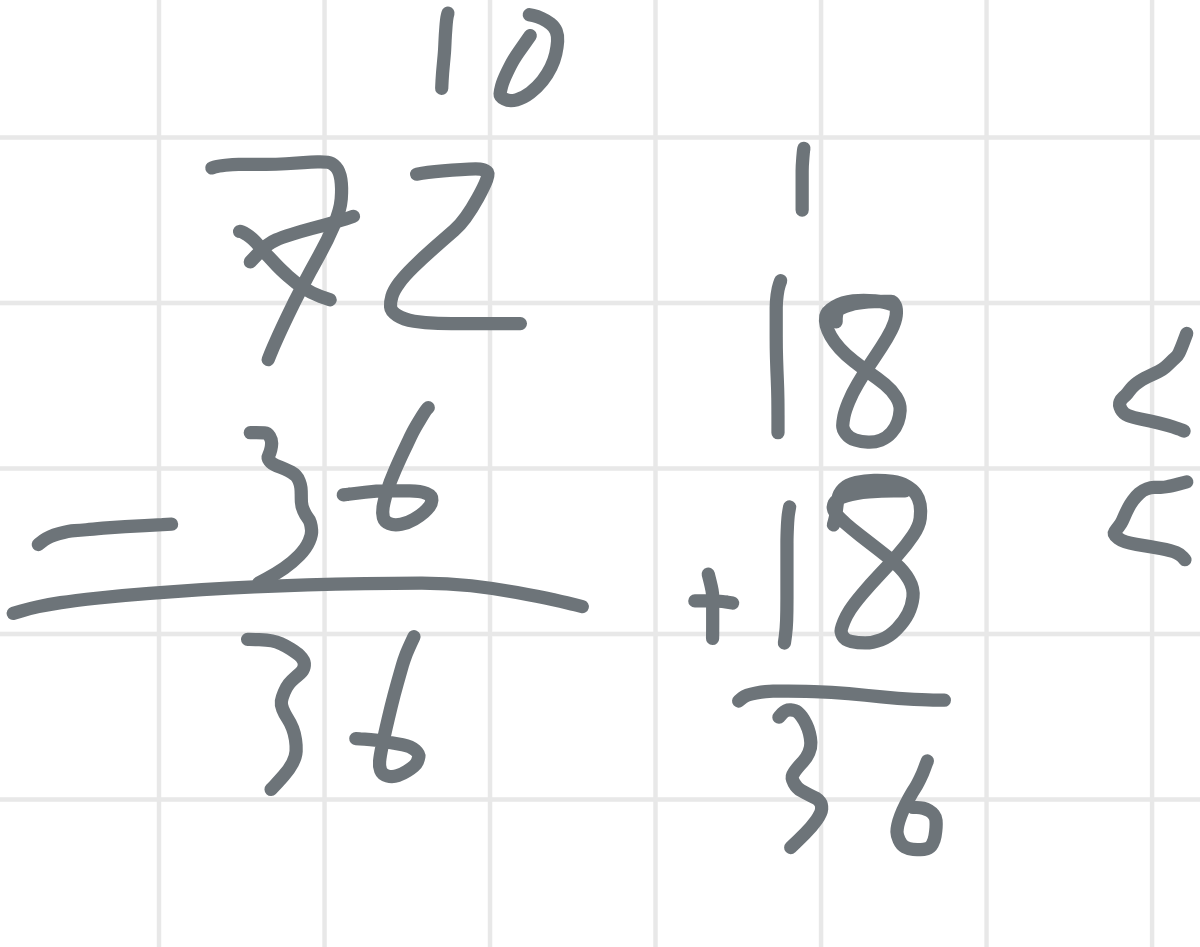 10
72
- 36
36
1
18
+ 18
36